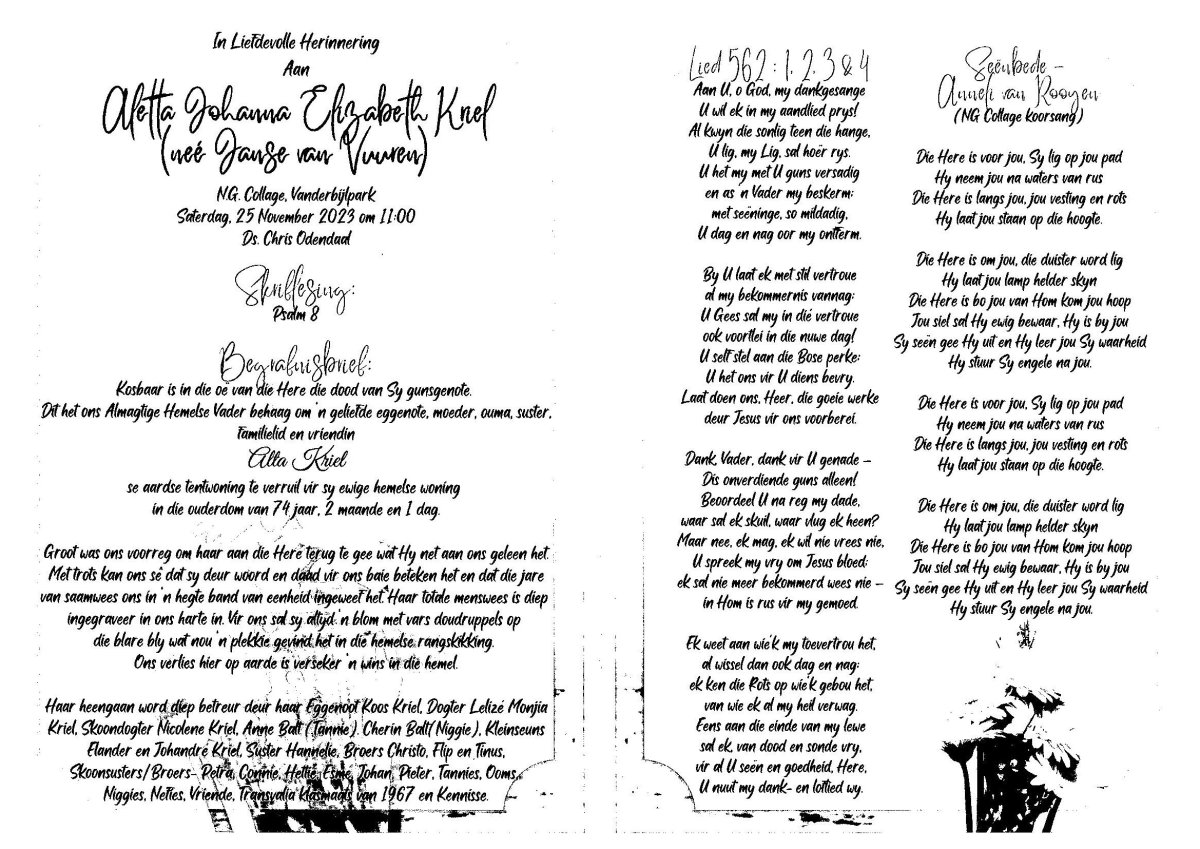 In Liefdevolle Herinnering
Aan
Aletta Johanna Elizabeth Kriel
(neé Janse van Vuuren)
N.G. Collage, Vanderbijlpark
Saterdag, 25 November 2023 om 11:00
Ds. Chris Odendaal
Skriflesing:
Psalm 8
Begrafnisbrief:
Kosbaar is in die oë van die Here die dood van Sy gunsgenote.
Dit het ons Almagtige Hemelse Vader behaag om 'n geliefde eggenote, moeder, ouma, suster,
familielid en vriendin
Alta Kriel
se aardse tentwoning te verruil vir sy ewige hemelse woning
in die ouderdom van 74 jaar, 2 maande en 1 dag.
Groot was ons voorreg om haar aan die Here terug te gee wat Hy net aan ons geleen het.
Met trots kan ons sê dat sy deur woord en daad vir ons baie beteken het en dat die jare
van saamwees ons in 'n hegte band van eenheid ingeweef het. Haar totale menswees is diep
ingegraveer in ons harte in. Vir ons sal sy altyd 'n blom met vars doudruppels op
die blare bly wat nou 'n plekkie gevind het in die hemelse rangskikking.
Ons verlies hier op aarde is verseker 'n wins in die hemel.
Haar heengaan word diep betreur deur haar Eggenoot Koos Kriel, Dogter Lelizé Monjia
Kriel, Skoondogter Nicolene Kriel, Anne Balt (Tannie). Cherin Balt(Niggie), Kleinseuns
Elander en Johandré Kriel, Suster Hannelie, Broers Christo, Flip en Tinus,
Skoonsusters/Broers- Petra, Connie, Hettie, Esmé, Johan, Pieter, Tannies, Ooms,
Niggies, Nefies, Vriende, Transvalia klasmaats van 1967 en Kennisse.
Lied 562 : 1, 2, 3 & 4
Aan U, o God, my dankgesange
U wil ek in my aandlied prys!
Al kwyn die sonlig teen die hange,
U lig, my Lig, sal hoër rys.
U het my met U guns versadig
en as 'n Vader my beskerm;
met seëninge, so mildadig,
U dag en nag oor my ontferm.
By U laat ek met stil vertroue
al my bekommernis vannag:
U Gees sal my in dié vertroue
ook voortlei in die nuwe dag!
U self stel aan die Bose perke:
U het ons vir U diens bevry.
Laat doen ons, Heer, die goeie werke
deur Jesus vir ons voorberei.
Dank, Vader, dank vir U genade –
Dis onverdiende guns alleen!
Beoordeel U na reg my dade,
waar sal ek skuil, waar vlug ek heen?
Maar nee, ek mag, ek wil nie vrees nie,
U spreek my vry om Jesus bloed;
ek sal nie meer bekommerd wees nie –
in Hom is rus vir my gemoed.
Ek weet aan wie'k my toevertrou het,
al wissel dan ook dag en nag;
ek ken die Rots op wie'k gebou het,
van wie ek al my heil verwag.
Eens aan die einde van my lewe
sal ek, van dood en sonde vry,
vir al U seën en goedheid, Here,
U nuut my dank- en loflied wy.
Seënbede –
Anneli van Rooyen
(NG Collage koorsang)
Die Here is voor jou, Sy lig op jou pad
Hy neem jou na waters van rus
Die Here is langs jou, jou vesting en rots
Hy laat jou staan op die hoogte.
Die Here is om jou, die duister word lig
Hy laat jou lamp helder skyn
Die Here is bo jou van Hom kom jou hoop
Jou siel sal Hy ewig bewaar, Hy is by jou
Sy seën gee Hy uit en Hy leer jou Sy waarheid
Hy stuur Sy engele na jou.
Die Here is voor jou, Sy lig op jou pad
Hy neem jou na waters van rus
Die Here is langs jou, jou vesting en rots
Hy laat jou staan op die hoogte.
Die Here is om jou, die duister word lig
Hy laat jou lamp helder skyn
Die Here is bo jou van Hom kom jou hoop
Jou siel sal Hy ewig bewaar, Hy is by jou
Sy seën gee Hy uit en Hy leer jou Sy waarheid
Hy stuur Sy engele na jou.